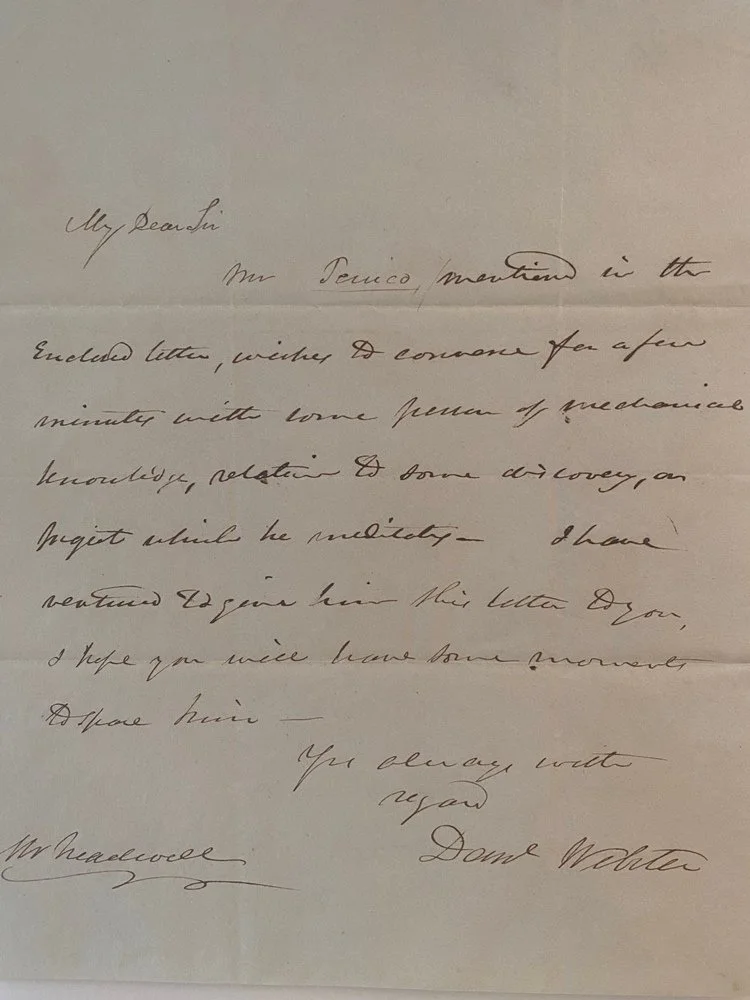 My Dear Sir
Mr Penico, mentioned in the
Enclosed letter, wishes to converse for a few
minutes with some person of mechanical
knowledge, relative to some discovery, or
project which he meditates — I have
ventured to give him this letter to you,
I hope you will have some moments
to spare him —
Yrs always with
regard
Danl Webster
Mr Treadwell